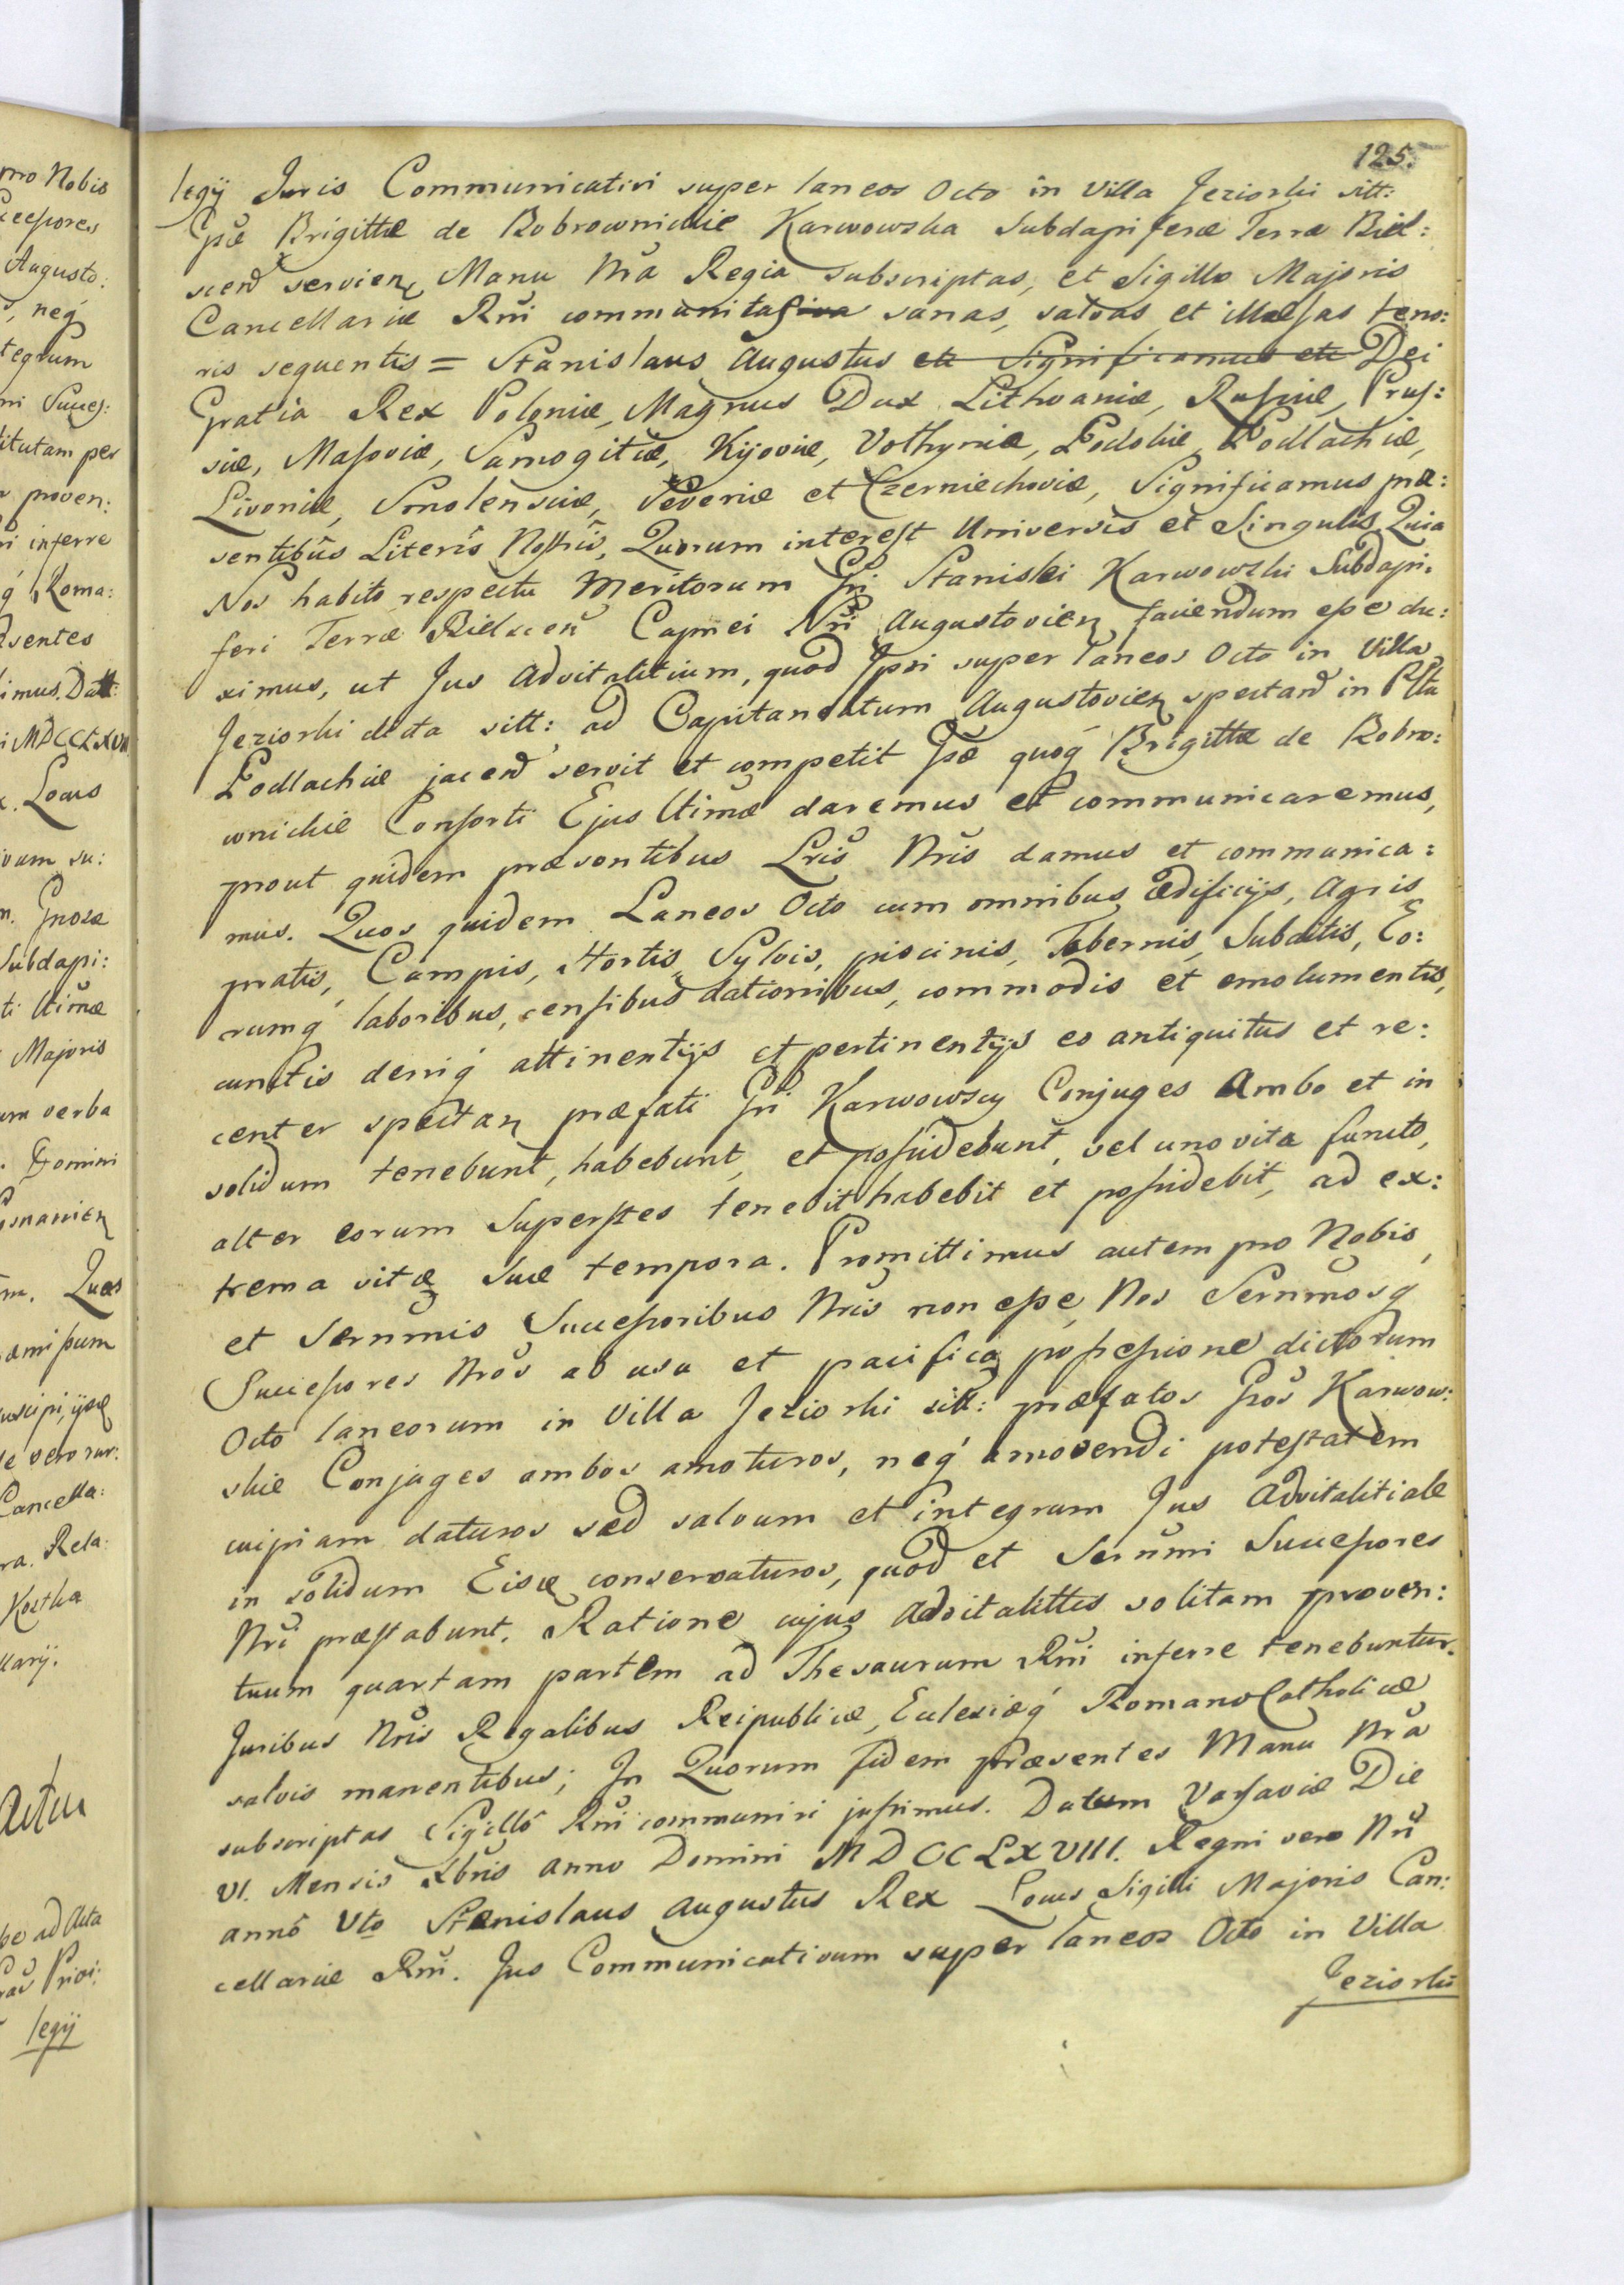 125.
legij Juris Communicativi super laneos Octo in Villa Jeziorki sitt:
Gsæ Brigittæ de Bobrownickie Karwowska Subdapiferæ Terræ Biel:
scen servien Manu Nrã Regia subscriptas, et Sigillo Majoris
Cancellariæ Rñi communitas sanas, salvas et illæsas teno:
ris sequentis = Stanislaus Augustus etc Significamus etc Dei
Gratia Rex Poloniæ, Magnus Dux Lithvaniæ, Russiæ, Prus:
siæ, Masoviæ, Samogitiæ, Kijoviæ, Volhyniæ, Podoliæ, Podlachiæ,
Livoniæ, Smolensciæ, Severiæ et Czerniechoviæ, Significamus præ:
sentibus Literis Nostris, Quorum interest Universis et Singulis, Quia
Nos habito respectu Meritorum Gsi Stanislai Karwowski Subdapi:
feri Terræ Bielscen Capnei Nri Augustovien faciendum esse du:
ximus, ut Jus Advitalitium, quod Ipsi super laneos Octo in Villa
Jeziorki dicta sitt: ad Capitaneatum Augustovien spectand in Pltu
Podlachiæ jacend servit et competit Gsæ quoq Brigittæ de Bobro:
wnickie Consorti Ejus ltimæ daremus et communicaremus,
prout quidem præsentibus Lris Nris damus et communica:
mus. Quos quidem Laneos Octo cum omnibus ædificijs, Agris
pratis, Campis, Hortis, Sylvis, piscinis, Tabernis, Subditis, Eo:
rumq laboribus, censibus dationibus, commodis et emolumentis,
cunctis deniq attinentijs et pertinentijs eo antiquitus et re:
center spectan præfati Gsi Karwowscy Conjuges Ambo et in
solidum tenebunt, habebunt, et possidebunt, vel uno vita functo,
alter eorum Superstes tenebit habebit et possidebit, ad ex:
trema vitæ Suæ tempora. Promittimus autem pro Nobis,
et Serñmis Successoribus Nris non esse Nos Serñmosq
Successores Nros ab usu et pacifica possessione dictorum
Octo laneorum in Villa Jeziorki sitt: præfatos Gsos Karwow:
skie Conjuges ambos amoturos, neq amovendi potestatem
cuipiam daturos sed salvum et integrum Jus Advitalitiale
in solidum Eisdæ conservaturos, quod et Serñmi Successores
Nri præstabunt. Ratione cujus Advitalittis solitam proven:
tuum quartam partem ad Thesaurum Rñi inferre tenebuntur.
Juribus Nris Regalibus Reipublicæ, Eclesiæq Romano Catholicæ
salvis manentibus; In Quorum fidem præsentes Manu Nrã
subscriptas Sigillô Rñi communiri jussimus. Datum Varsaviæ Die
VI. Mensis Xbris Anno Domini MDCCLXVIII. Regni vero Nri
annô Vto Stanislaus Augustus Rex Locus Sigilli Majoris Can:
cellariæ Rñi. Jus Communicativum super laneos Octo in Villa
Jeziorki
pro Nobis
Augusto:
neq
tegrum
ni Succes:
titutam per
proven:
inferre
q Roma:
sentes
simus. Datt:
i MDCCLXVIII
Locus
ivum su:
Gnosæ
Subdapi:
ti ltimæ
Majoris
um verba
Domini
snanien
Quas
suscipi, ipsæ
e vero sur:
Cancella:
ra. Rela:
Kostka
llarij.
Actum
be ad Acta
legij